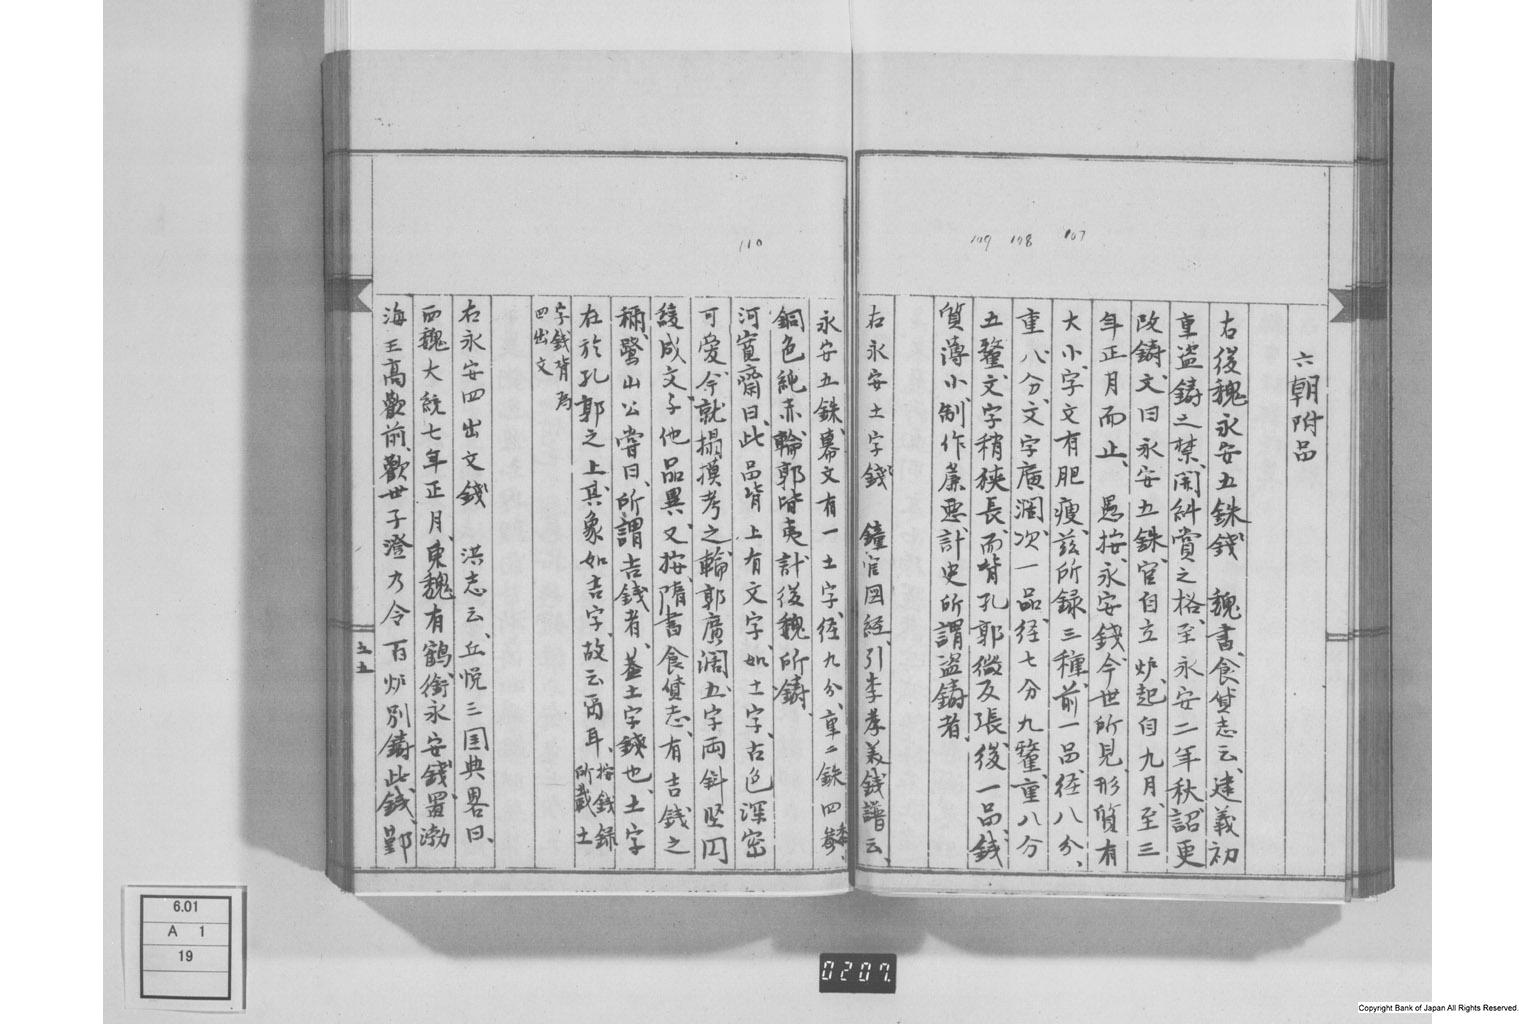 六朝附品
右後魏永安五銖錢 魏書食貨志云、建義初
重盗鋳之禁、開糾賞之格、至永安二年秋、詔更
改鋳、文曰永安五銖、官自立炉、起自九月至三
年正月而止、愚按、永安錢、今世所見、形質有
大小、字文有肥瘦、茲所録三種、前一品径八分、
重八分、文字廣濶、次一品、径七分九釐、重八分
五釐、文字稍狭長、而背孔郭微反張、後一品、錢
質薄小、制作麁悪、計史所謂盗鋳者、
右永安土字錢 鐘官図経、引李孝美錢譜云、
永安五銖、幕文有一土字、径九分、重二銖四絫、
銅色純赤、輪郭皆夷、計後魏所鋳、
河寛齋曰、此品背上有文字、如土字、古色深密
可愛、今就搨摸考之、輪郭廣濶、五字両斜竪図
綾成文、子他品異、又按、隋書食貨志、有吉錢之
稱、鷺山公嘗曰、所謂吉錢者、蓋土字錢也、土字
在於孔郭之上、其象如吉字、故云爾耳、按錢録
所載土
字錢背為
四出文
右永安四出文錢 洪志云、丘悦三国典畧曰、
西魏大統七年正月、東魏有鶴、銜永安錢、置渤
海王高歡前、歡世子澄乃令百炉別鋳此錢、鄴
五五
110
109
108
107
6.01
A 1
19
0207.
Copyright Bank of Japan All Rights Reserved.